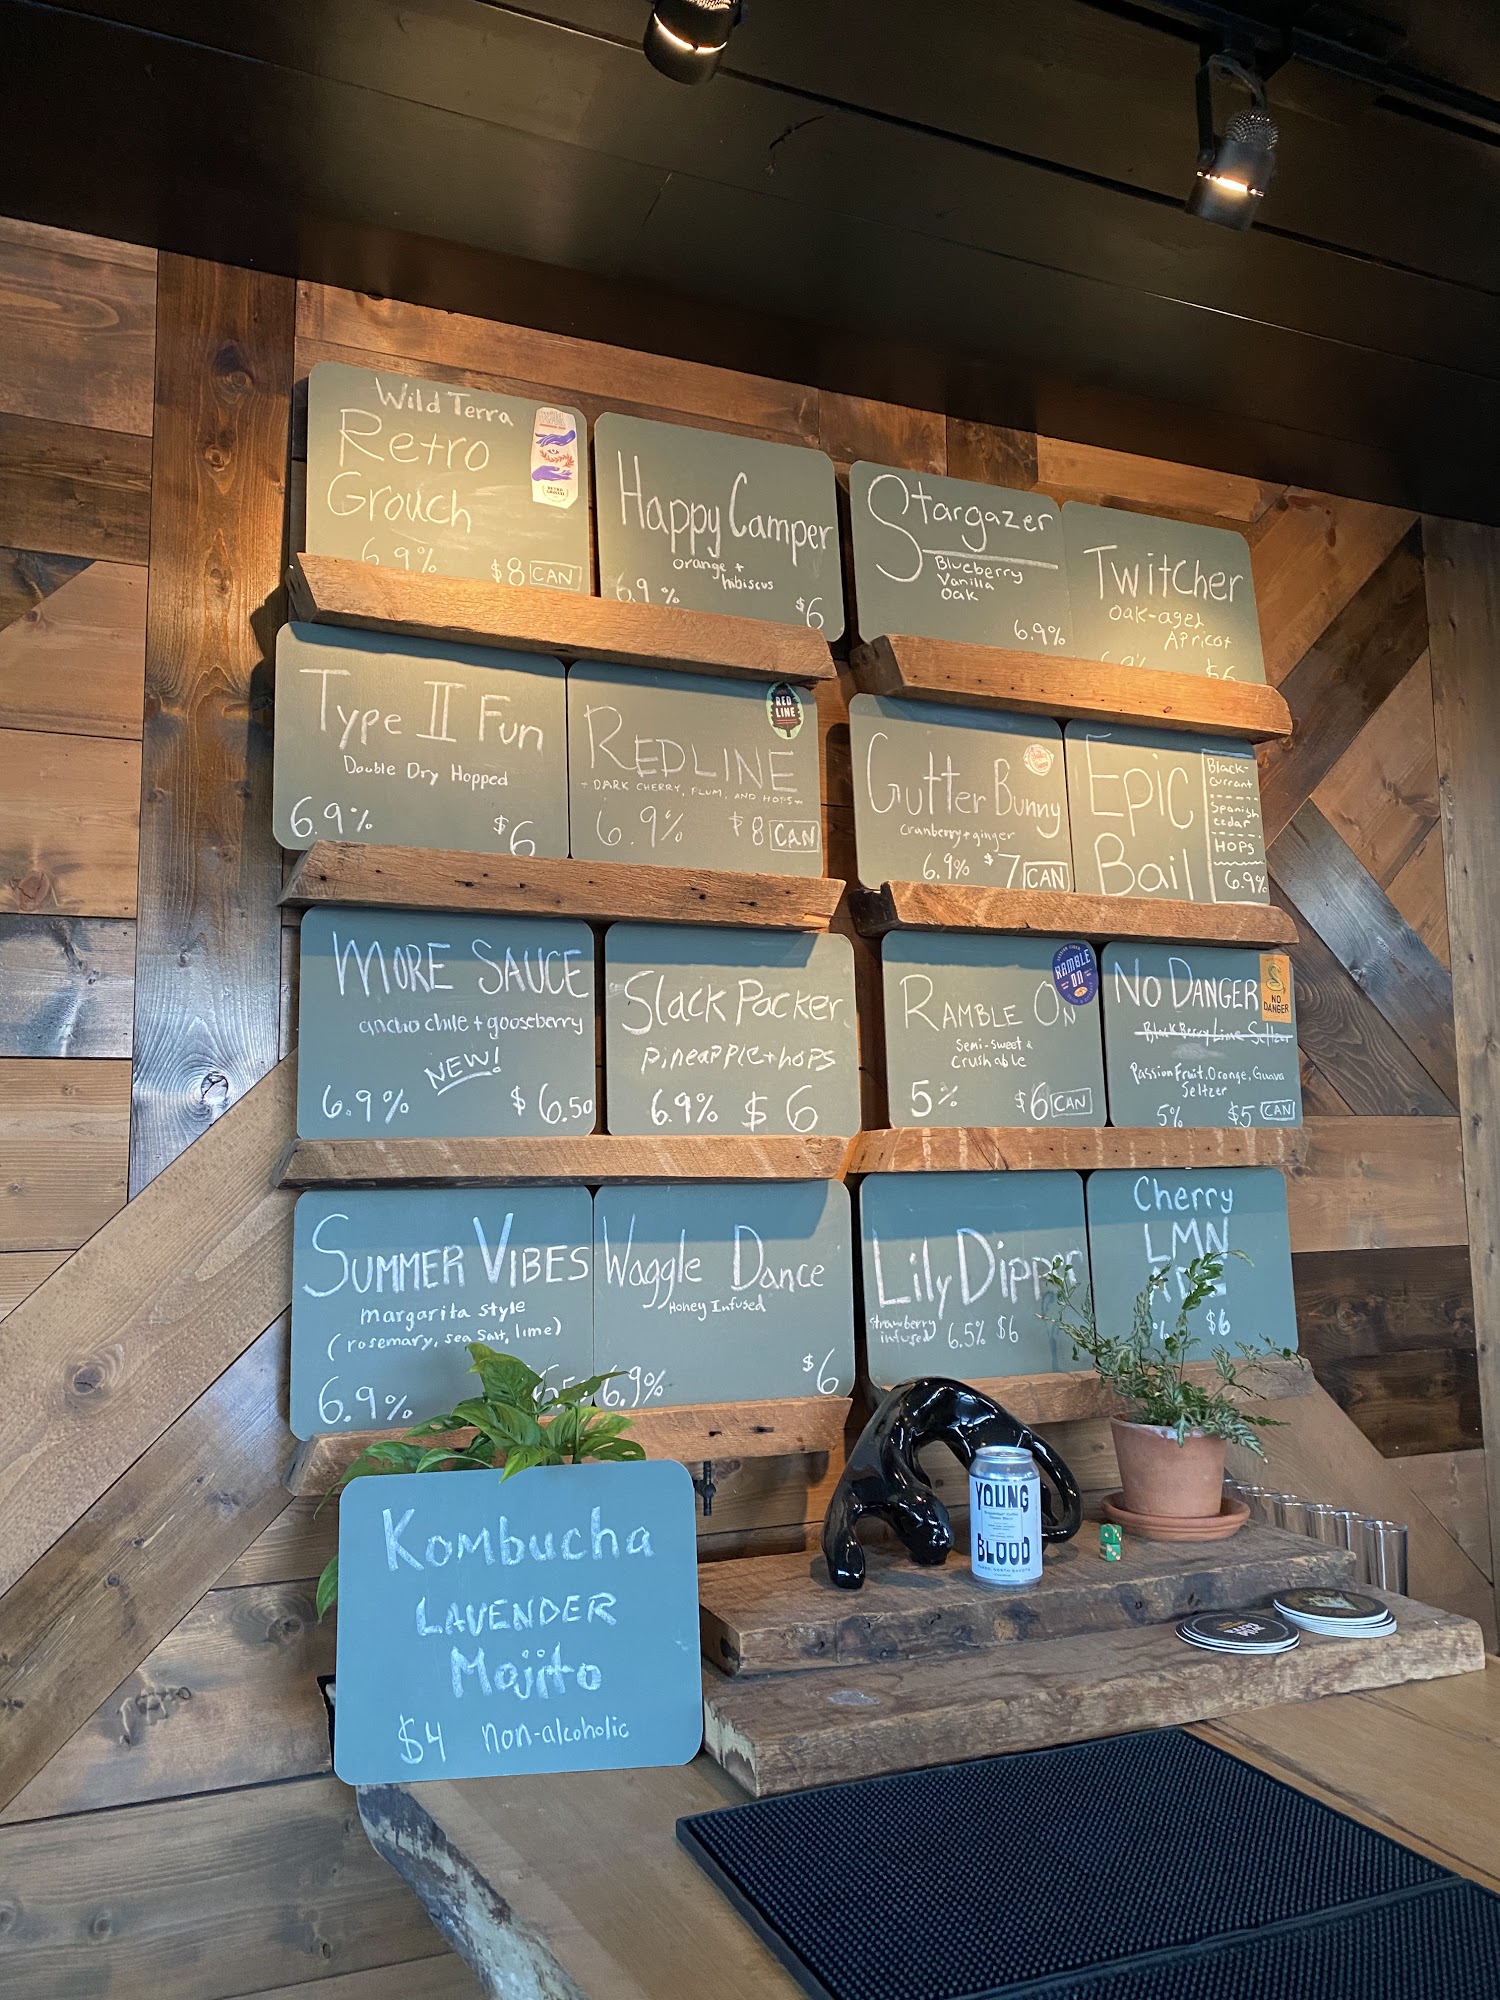 Wild Terra
Retro
Grouch
6.9%
$8 CAN
Happy Camper
orange +
hibiscus
6.9%
$6
Stargazer
Blueberry
Vanilla
Oak
6.9%
Twitcher
Oak-aged
Apricot
$6
Type II Fun
Double Dry Hopped
6.9%
$6
RED
LINE
REDLINE
- DARK CHERRY, PLUM, AND HOPS -
6.9%
$8 CAN
Gutter Bunny
cranberry + ginger
6.9% $7 CAN
Epic
Bail
Black-
currant
Spanish
cedar
HOPS
6.9%
MORE SAUCE
ancho chile + gooseberry
NEW!
6.9%
$6.50
Slack Packer
pineapple + hops
6.9% $6
RAMBLE
ON
RAMBLE ON
Semi-sweet &
Crushable
5%
$6 CAN
NO DANGER
NO
DANGER
BlackBerry Lime Seltzer
Passion Fruit, Orange, Guava
Seltzer
5%
$5 CAN
SUMMER VIBES
margarita style
(rosemary, sea salt, lime)
6.9%
Waggle Dance
Honey Infused
6.9%
$6
Lily Dipper
Strawberry
infused
6.5% $6
Cherry
LMN
%
$6
Kombucha
LAVENDER
Mojito
$4 non-alcoholic
YOUNG
BLOOD